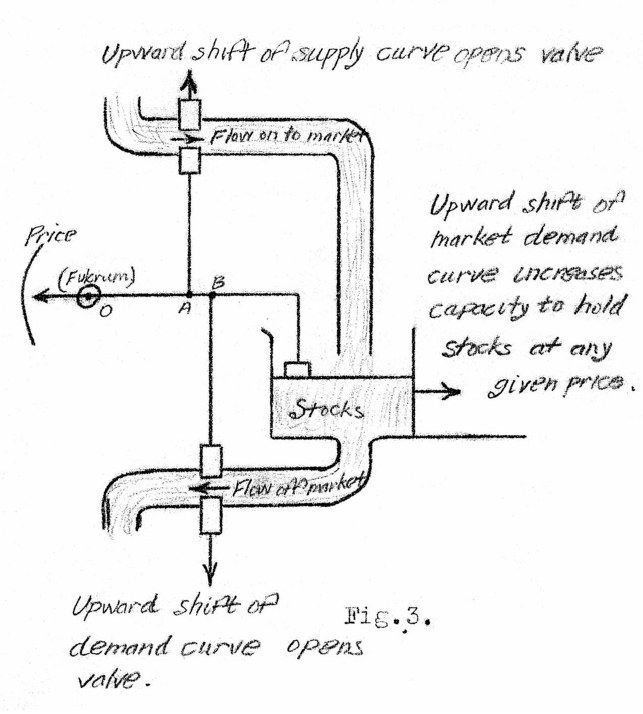 Upward shift of supply curve opens valve
Flow on to market
Upward shift of
market demand
curve increases
capacity to hold
stocks at any
given price.
Price
(Fulcrum)
O
A
B
Stocks
Flow off market
Upward shift of
demand curve opens
valve.
Fig.3.